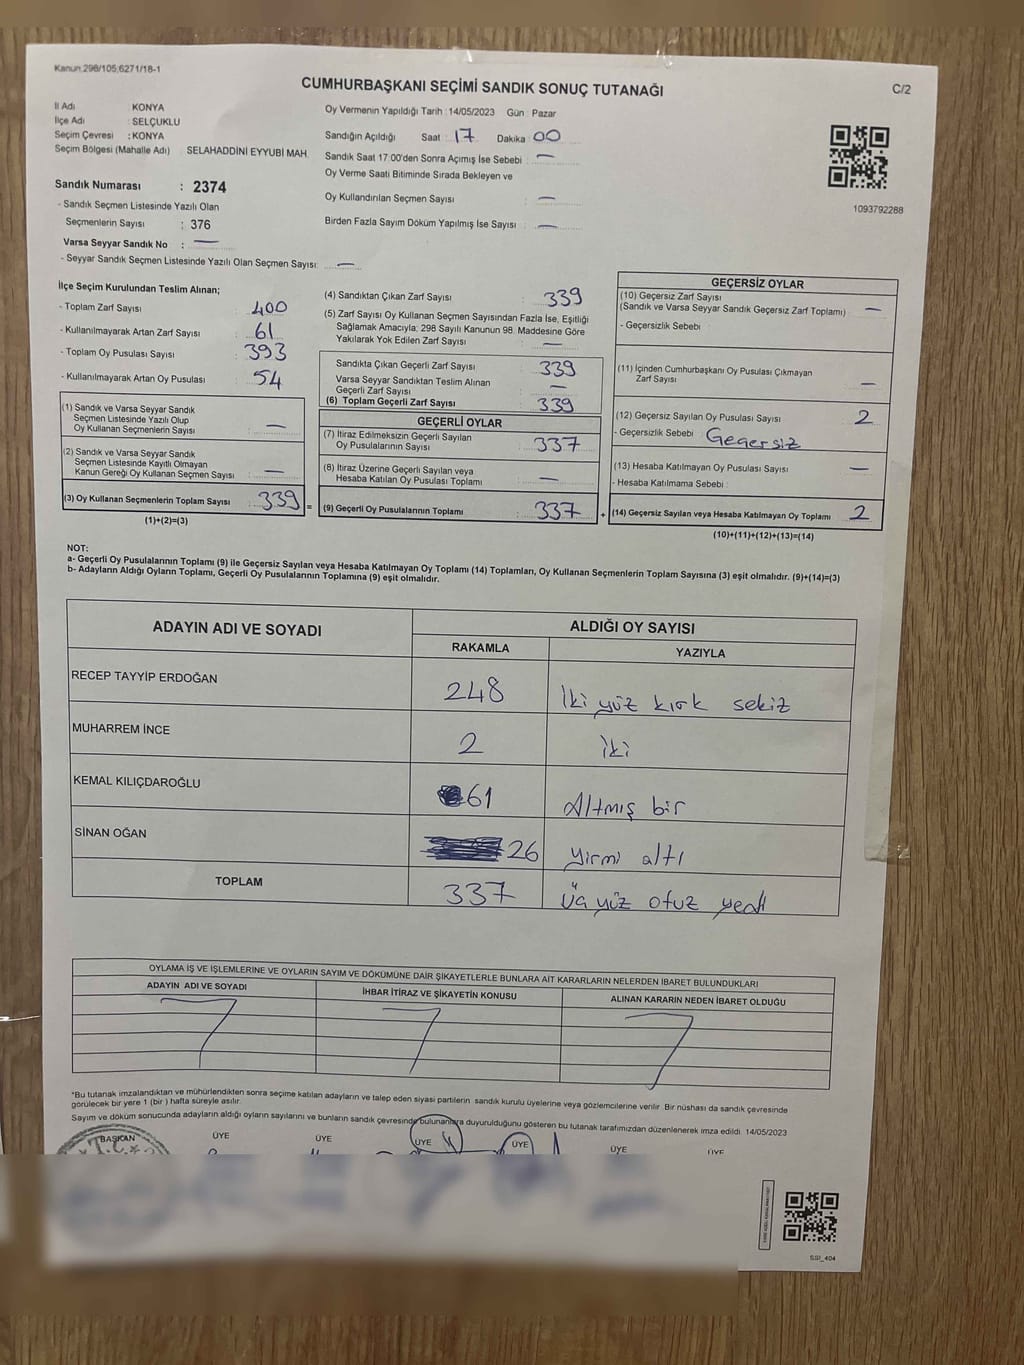 Kanun:298/105;6271/18-1
CUMHURBAŞKANI SEÇİMİ SANDIK SONUÇ TUTANAĞI
C/2
İl Adı : KONYA
İlçe Adı : SELÇUKLU
Seçim Çevresi : KONYA
Seçim Bölgesi (Mahalle Adı) SELAHADDİNİ EYYUBİ MAH.
Sandık Numarası : 2374
- Sandık Seçmen Listesinde Yazılı Olan
Seçmenlerin Sayısı : 376
Varsa Seyyar Sandık No : —
- Seyyar Sandık Seçmen Listesinde Yazılı Olan Seçmen Sayısı: —
Oy Vermenin Yapıldığı Tarih : 14/05/2023 Gün : Pazar
Sandığın Açıldığı Saat : 17 Dakika : 00
Sandık Saat 17:00'den Sonra Açımış İse Sebebi : —
Oy Verme Saati Bitiminde Sırada Bekleyen ve
Oy Kullandırılan Seçmen Sayısı : —
Birden Fazla Sayım Döküm Yapılmış İse Sayısı : —
1093792288
İlçe Seçim Kurulundan Teslim Alınan;
- Toplam Zarf Sayısı : 400
- Kullanılmayarak Artan Zarf Sayısı : 61
- Toplam Oy Pusulası Sayısı : 393
- Kullanılmayarak Artan Oy Pusulası : 54
(1) Sandık ve Varsa Seyyar Sandık
Seçmen Listesinde Yazılı Olup
Oy Kullanan Seçmenlerin Sayısı : —
(2) Sandık ve Varsa Seyyar Sandık
Seçmen Listesinde Kayıtlı Olmayan
Kanun Gereği Oy Kullanan Seçmen Sayısı : —
(3) Oy Kullanan Seçmenlerin Toplam Sayısı : 339 =
(1)+(2)=(3)
(4) Sandıktan Çıkan Zarf Sayısı : 339
(5) Zarf Sayısı Oy Kullanan Seçmen Sayısından Fazla İse, Eşitliği
Sağlamak Amacıyla; 298 Sayılı Kanunun 98. Maddesine Göre
Yakılarak Yok Edilen Zarf Sayısı : —
Sandıkta Çıkan Geçerli Zarf Sayısı : 339
Varsa Seyyar Sandıktan Teslim Alınan
Geçerli Zarf Sayısı : —
(6) Toplam Geçerli Zarf Sayısı : 339
GEÇERLİ OYLAR
(7) İtiraz Edilmeksizin Geçerli Sayılan
Oy Pusulalarının Sayısı : 337
(8) İtiraz Üzerine Geçerli Sayılan veya
Hesaba Katılan Oy Pusulası Toplamı : —
(9) Geçerli Oy Pusulalarının Toplamı : 337 +
GEÇERSİZ OYLAR
(10) Geçersiz Zarf Sayısı
(Sandık ve Varsa Seyyar Sandık Geçersiz Zarf Toplamı) : —
- Geçersizlik Sebebi
(11) İçinden Cumhurbaşkanı Oy Pusulası Çıkmayan
Zarf Sayısı : —
(12) Geçersiz Sayılan Oy Pusulası Sayısı : 2
- Geçersizlik Sebebi : Geçersiz
(13) Hesaba Katılmayan Oy Pusulası Sayısı : —
- Hesaba Katılmama Sebebi :
(14) Geçersiz Sayılan veya Hesaba Katılmayan Oy Toplamı : 2
(10)+(11)+(12)+(13)=(14)
NOT:
a- Geçerli Oy Pusulalarının Toplamı (9) ile Geçersiz Sayılan veya Hesaba Katılmayan Oy Toplamı (14) Toplamları, Oy Kullanan Seçmenlerin Toplam Sayısına (3) eşit olmalıdır. (9)+(14)=(3)
b- Adayların Aldığı Oyların Toplamı, Geçerli Oy Pusulalarının Toplamına (9) eşit olmalıdır.
ADAYIN ADI VE SOYADI
ALDIĞI OY SAYISI
RAKAMLA YAZIYLA
RECEP TAYYİP ERDOĞAN 248 İki yüz kırk sekiz
MUHARREM İNCE 2 iki
KEMAL KILIÇDAROĞLU 61 Altmış bir
SİNAN OĞAN 26 yirmi altı
TOPLAM 337 Üç yüz otuz yedi
OYLAMA İŞ VE İŞLEMLERİNE VE OYLARIN SAYIM VE DÖKÜMÜNE DAİR ŞİKAYETLERLE BUNLARA AİT KARARLARIN NELERDEN İBARET BULUNDUKLARI
ADAYIN ADI VE SOYADI İHBAR İTİRAZ VE ŞİKAYETİN KONUSU ALINAN KARARIN NEDEN İBARET OLDUĞU
*Bu tutanak imzalandıktan ve mühürlendikten sonra seçime katılan adayların ve talep eden siyasi partilerin sandık kurulu üyelerine veya gözlemcilerine verilir. Bir nüshası da sandık çevresinde
görülecek bir yere 1 (bir ) hafta süreyle asılır.
Sayım ve döküm sonucunda adayların aldığı oyların sayılarını ve bunların sandık çevresinde bulunanlara duyurulduğunu gösteren bu tutanak tarafımızdan düzenlenerek imza edildi. 14/05/2023
BAŞKAN ÜYE ÜYE ÜYE ÜYE ÜYE ÜYE
T.C.
SSI_404